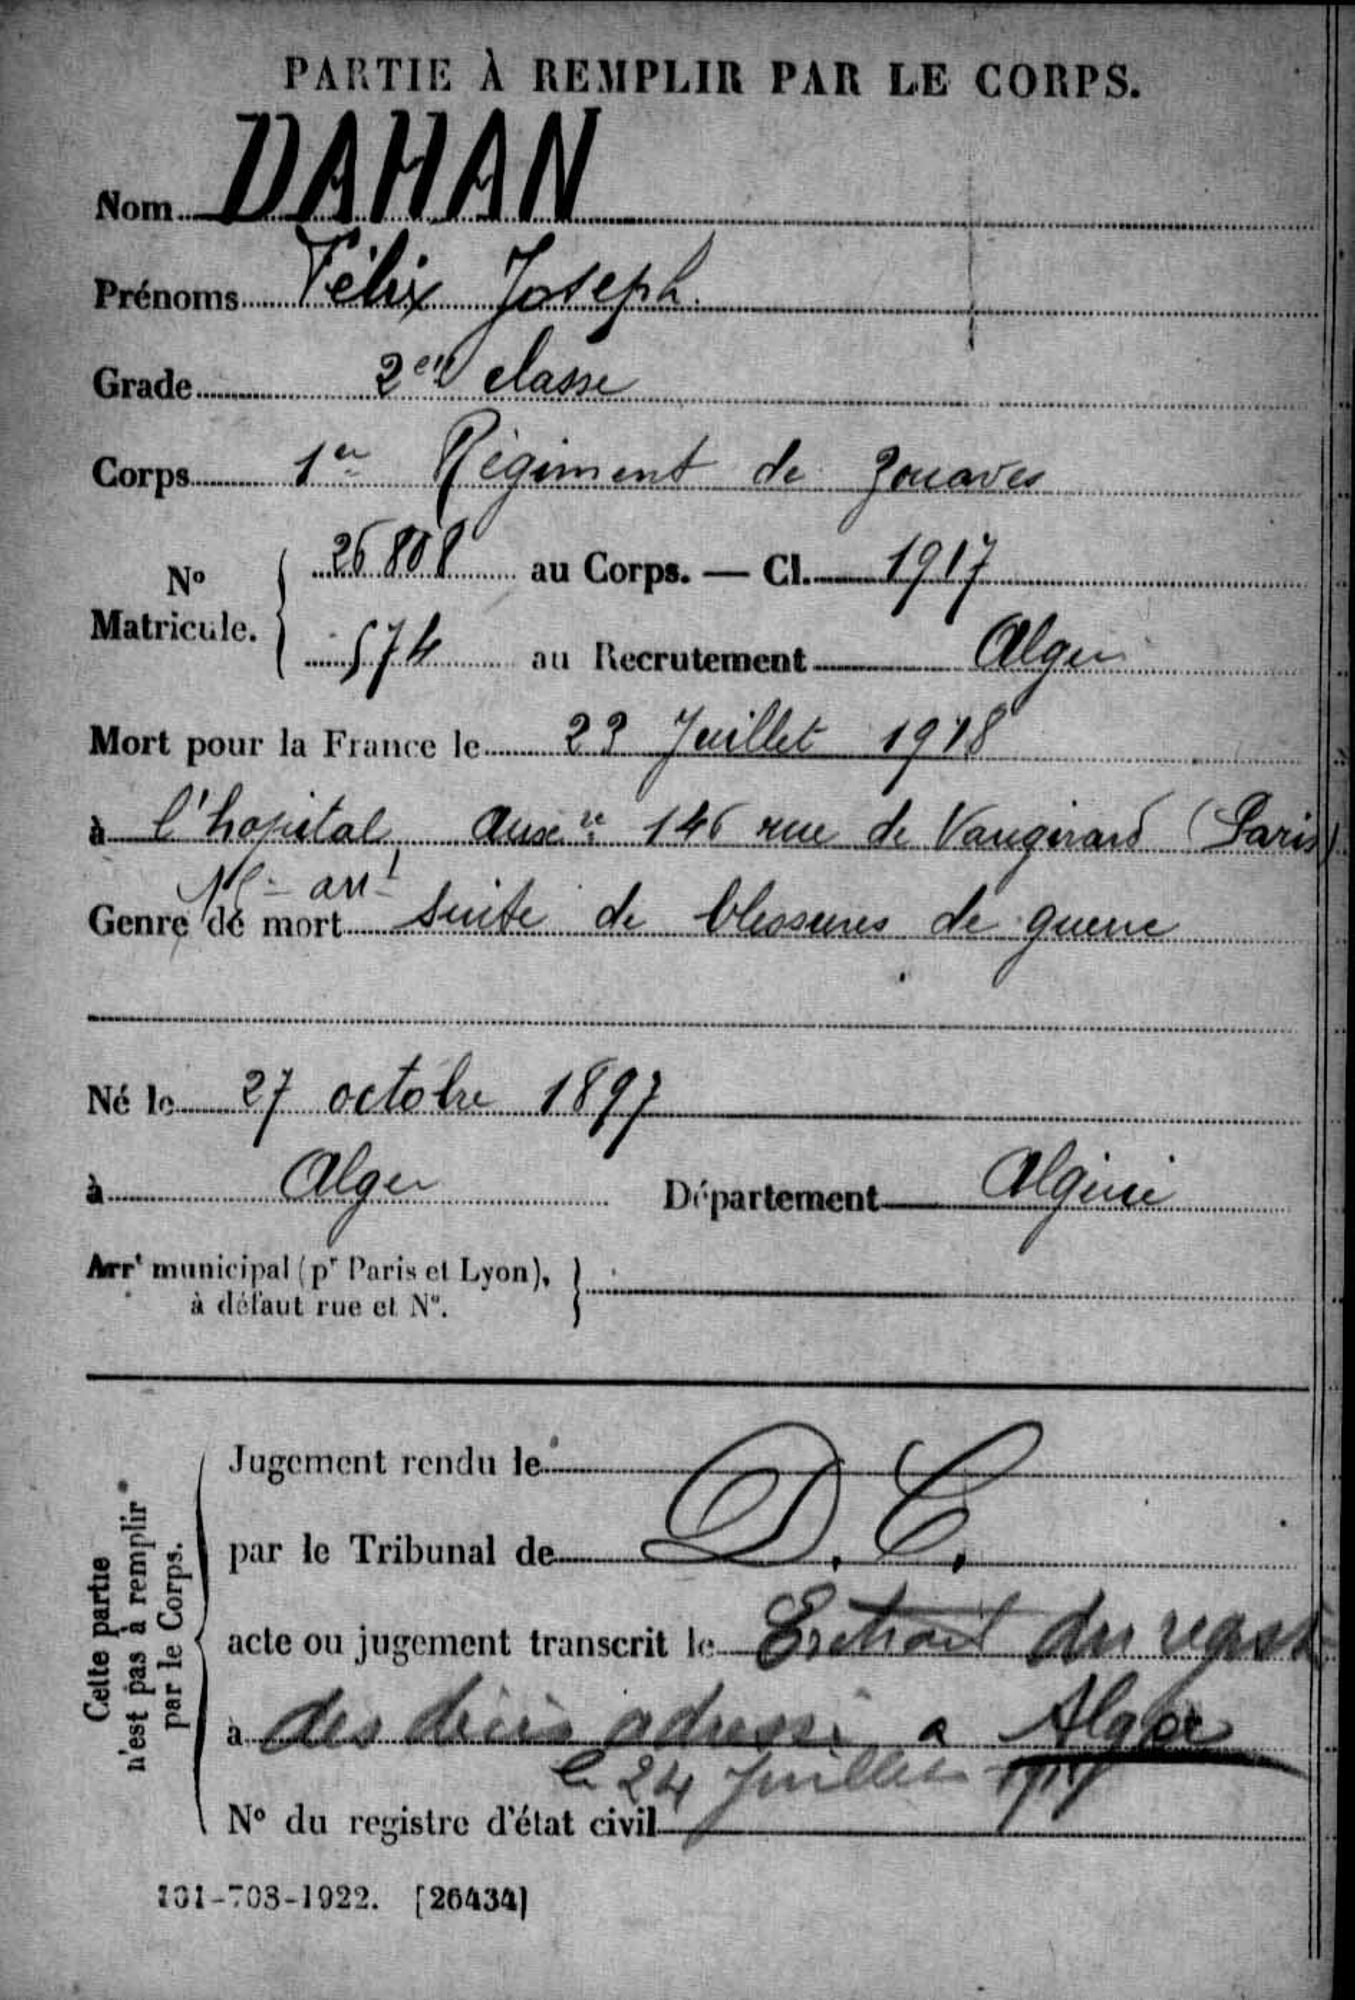 PARTIE À REMPLIR PAR LE CORPS.
Nom DAHAN
Prénoms Félix Joseph.
Grade 2e classe
Corps 1er Régiment de Zouaves
No Matricule. 26808 au Corps. — Cl. 1917
574 au Recrutement Alger
Mort pour la France le 23 Juillet 1918
à l'hopital Auxre 146 rue de Vaugirard (Paris)
15e arrt
Genre de mort Suite de blessures de guerre
Né le 27 octobre 1897
à Alger Département Algérie
Arrt municipal (pr Paris et Lyon),
à défaut rue et No.
Cette partie
n'est pas à remplir
par le Corps.
Jugement rendu le
par le Tribunal de D. C.
acte ou jugement transcrit le Extrait du regist
à des décès adressé a Alger
le 24 Juillet
No du registre d'état civil
101-708-1922. [26434]